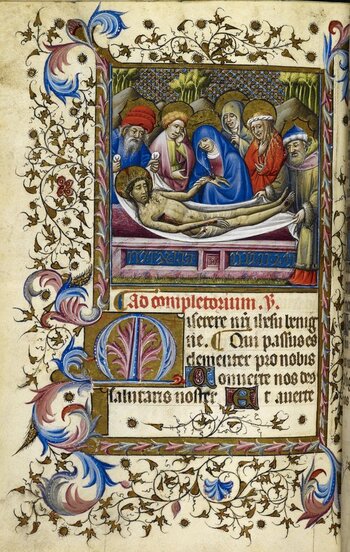 Ad completorium. V.
Miserere mi ihesu benig
ne. Qui passus es
clementer pro nobis
Conuerte nos
salutaris noster Et auerte